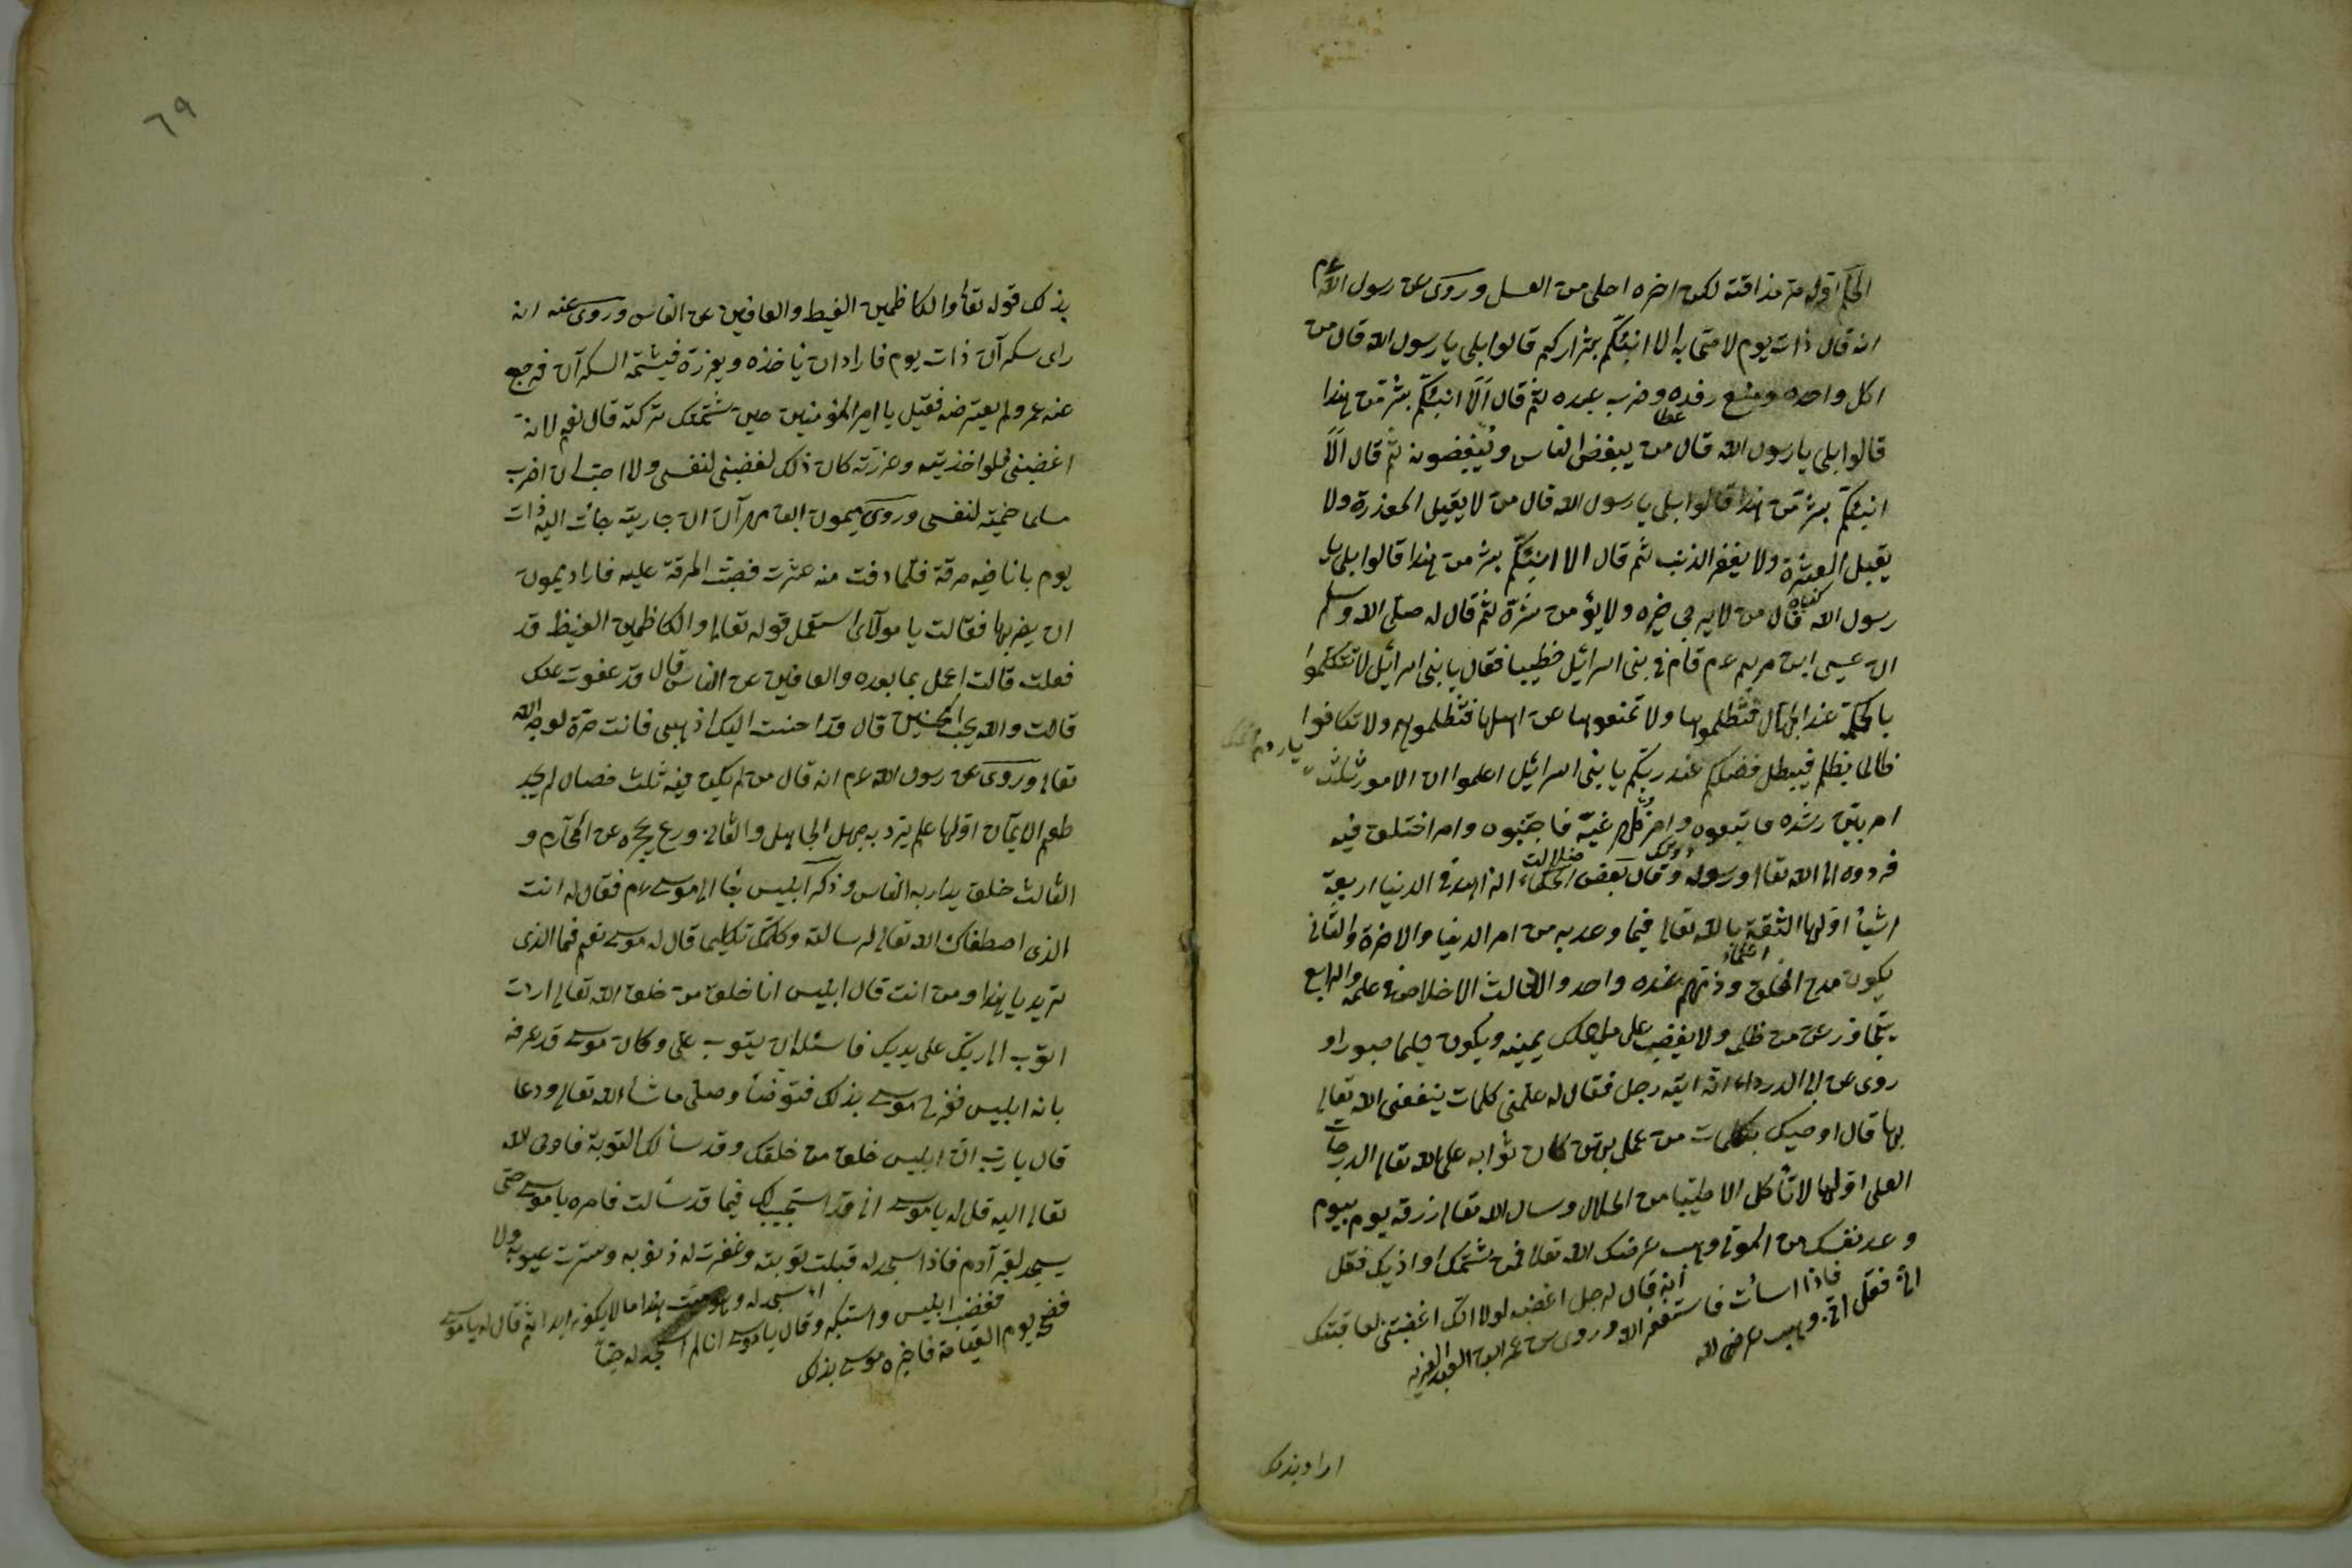 الحكم اوله مرّ مذاقته لكن اخره احلى من العسل وروى عن رسول الله عم
انه قال ذات يوم لاصحابه الا انبئكم بشراركم قالوا بلى يا رسول الله قال من
اكل واحده ومنع رفده وضرب عبده ثم قال الا انبئكم بشر من هذا
عطا
قالوا بلى يا رسول الله قال من يبغض الناس ويبغضونه ثم قال الا
انبئكم بشر من هذا قالوا بلى يا رسول الله قال من لا يقيل المعذرة ولا
يقبل العثرة ولا يغفر الذنب ثم قال الا انبئكم بشر من هذا قالوا بلى يا
كناه
رسول الله قال من لا يرجى خيره ولا يؤمن شره ثم قال له صلى الله وسلم
ان عيسى ابن مريم عم قام فى بنى اسرائيل خطيبا فقال يا بنى اسرائيل لا تتكلموا
بالحكمة عند الجهال فتظلموها ولا تمنعوها عن اهلها فتظلموهم ولا تكافوا
ظالما بظلم فيبطل فضلكم عند ربكم يا بنى اسرائيل اعلموا ان الامور ثلثة
امر بين رشده فاتبعوه وامر ظهر غيه فاجتنبوه وامر اختلف فيه
ضلالت
فردوه الى الله تعالى ورسوله وقال بعض الحكماء الزاهد فى الدنيا اربعة
اشيأ اولها الثقة بالله تعالى فيما وعد به من امر الدنيا والاخرة والثانى
يكون مدح الخلق وذمهم عنده واحد والثالث الاخلاص فى علمه والرابع
يتجاوز عن من ظلمه ولا يغضب على ما ملك يمينه ويكون حليما صبورا و
روى عن ابى الدرداء انه اتيه رجل فقال له علمنى كلمات ينفعنى الله تعالى
بها قال اوصيك بكلمات من عمل بهن كان ثوابه على الله تعالى الدرجات
العلى اولها لا تأكل الا طيبا من الحلال وسال الله تعالى رزقه يوم بيوم
وعد نفسك من الموتى وهب عرضك الله تعالى فمن شتمك او اذيك فقل
انى فقل انى وهب عرضى لله
فاذا اسأت فاستغفر الله وروى عن عمر ابن العبد العزيز
انه قال لرجل اغضبه لولا انك اغضبتنى لعاقبتك
اراد بذلك
٦٩
بذلك قوله تعالى والكاظمين الغيظ والعافين عن الناس وروى عنه انه
راى سكرآن ذات يوم فاراد ان ياخذه ويعزره فيشتمه السكرآن فرجع
عنه عمر ولم يعترضه فقيل يا امير المؤمنين حين شتمتك تركته قال نعم لانه
اغضبنى فلو اخذيته وعزرته كان ذلك لغضبنى لنفسى ولا احب ان اضرب
مسلما حمية لنفسى وروى ميمون ابن مهرآن ان جارية جأت اليه ذات
يوم بانا فيه مرقة فلما دفت منه عثرت فصبت المرقة عليه فاراد ميمون
ان يضربها فقالت يا مولاى استعمل قوله تعالى والكاظمين الغيظ قد
فعلت قالت اعمل بما بعده والعافين عن الناس قال قد عفوت عنك
قالت والله يحب المحسنين قال قد احسنت اليك اذهبى فانت حرة لوجه الله
تعالى وروى عن رسول الله عم انه قال من لم يكن فيه ثلث خصال لم يجد
طعم الايمان اولها علم يرد به جهل الجاهل والثانى ورع يحجزه عن المحارم و
الثالث خلق يدار به الناس وذكر ابليس جأ الى موسى عم فقال له انت
الذى اصطفاك الله تعالى لرسالته وكلمك تكليما قال له موسى نعم فما الذى
تريد يا هذا ومن انت قال ابليس انا خلق من خلق الله تعالى اردت
اتوب الى ربك على يديك فاسئله ان يتوب على وكان موسى قد عرفه
بانه ابليس ففرح موسى بذلك فتوضأ وصلى ما شأ الله تعالى ودعا
قال يا رب ان ابليس خلق من خلقك وقد سألك التوبة فاوحى الله
تعالى اليه قل له يا موسى انى قد استجيب لك فيما قد سألت فامره يا موسى حتى
يسجد لقبر آدم فاذا سجد له قبلت توبته وغفرت له ذنوبه وسترت عيوبه ولا
فضح يوم القيامة فاخبره موسى بذلك
فغضب ابليس واستكبر وقال يا موسى انا لم اسجد له حيا